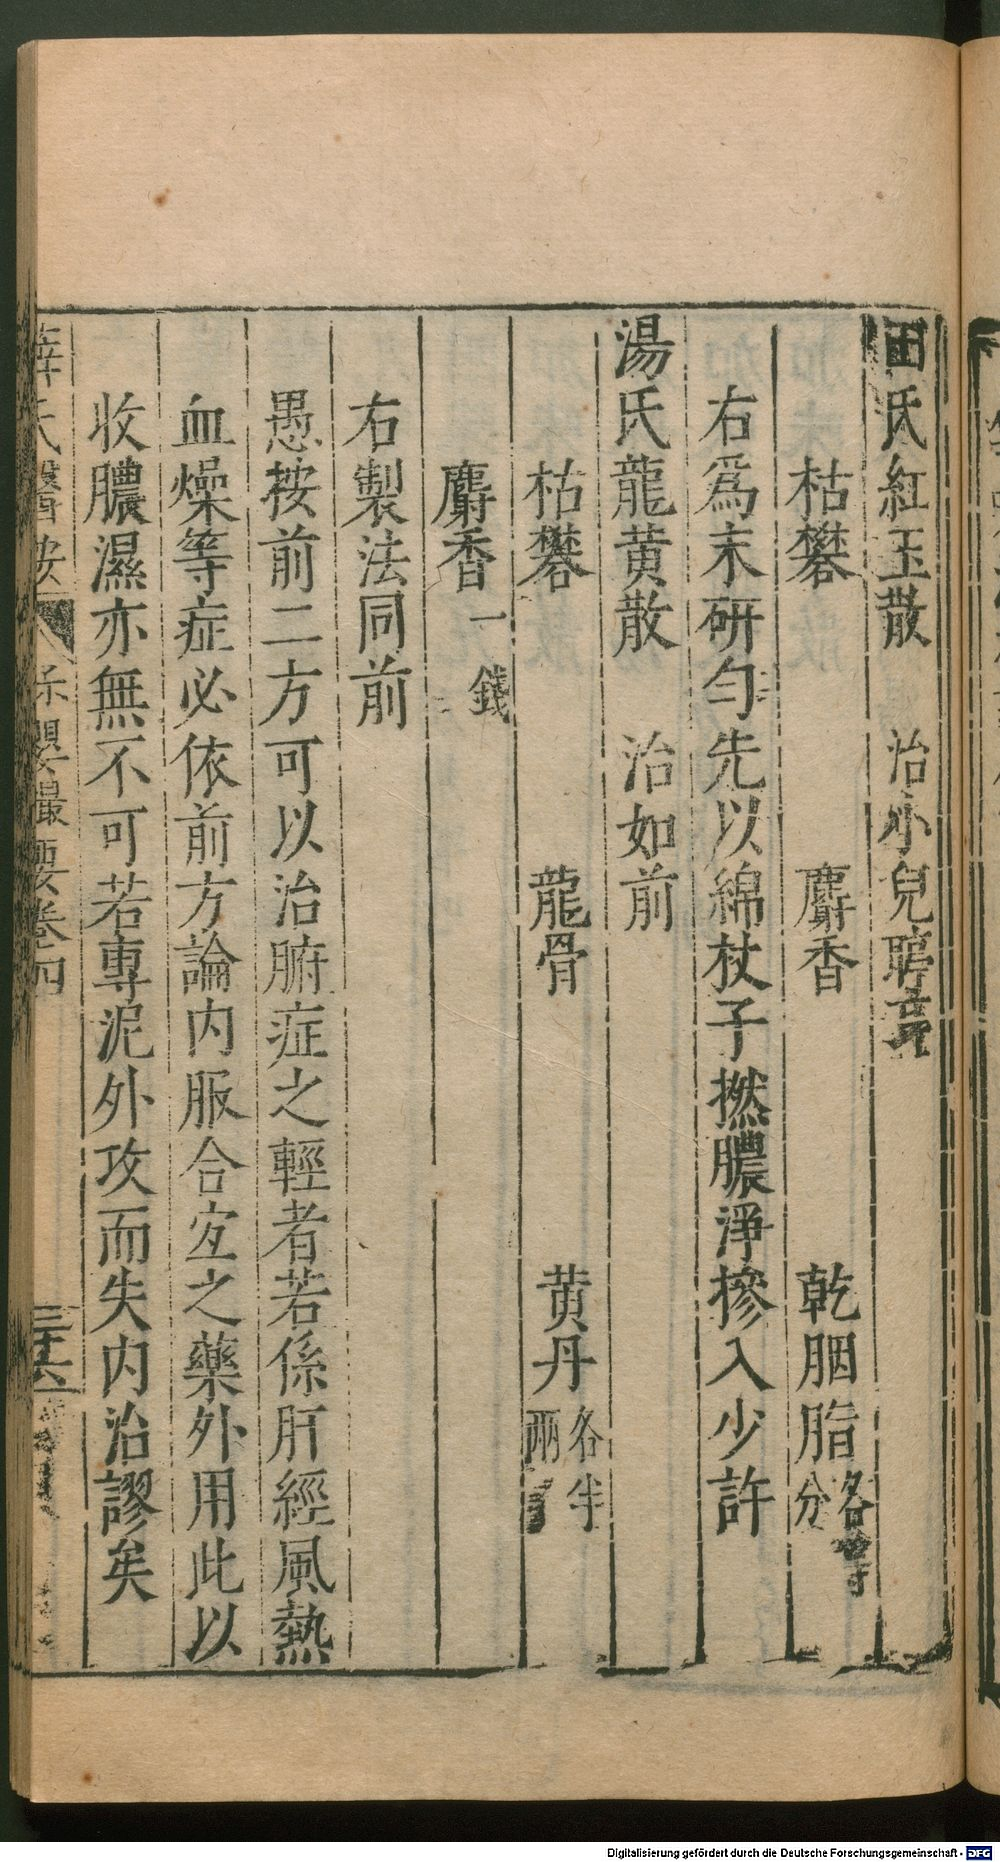 田氏紅玉散　治小兒聤
枯礬　麝香　乾胭脂各等分
右爲末研勻先以綿杖子撚膿淨摻入少許
湯氏龍黄散　治如前
枯礬　龍骨　黄丹各半兩
麝香一錢
右製法同前
愚按前二方可以治腑症之輕者若係肝經風熱
血燥等症必依前方論内服合宜之藥外用此以
收膿濕亦無不可若專泥外攻而失内治謬矣
薛氏醫按　保嬰撮要卷四　三十六
Digitalisierung gefördert durch die Deutsche Forschungsgemeinschaft - DFG